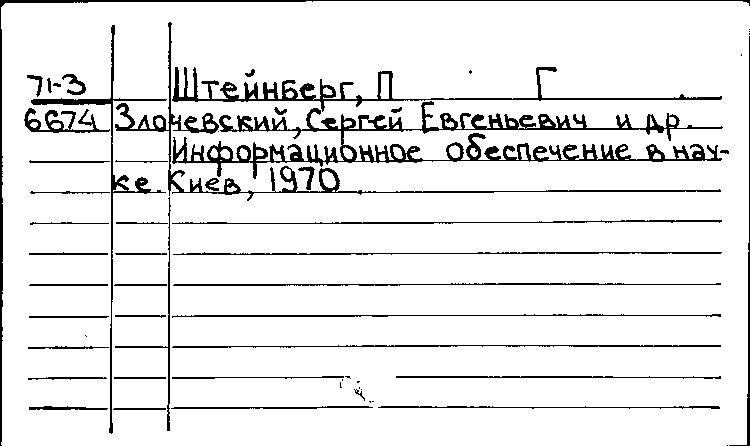 71-3 Штейнберг, П Г
6674 Злочевский, Сергей Евгеньевич и др.
Информационное обеспечение в нау-
ке. Киев, 1970